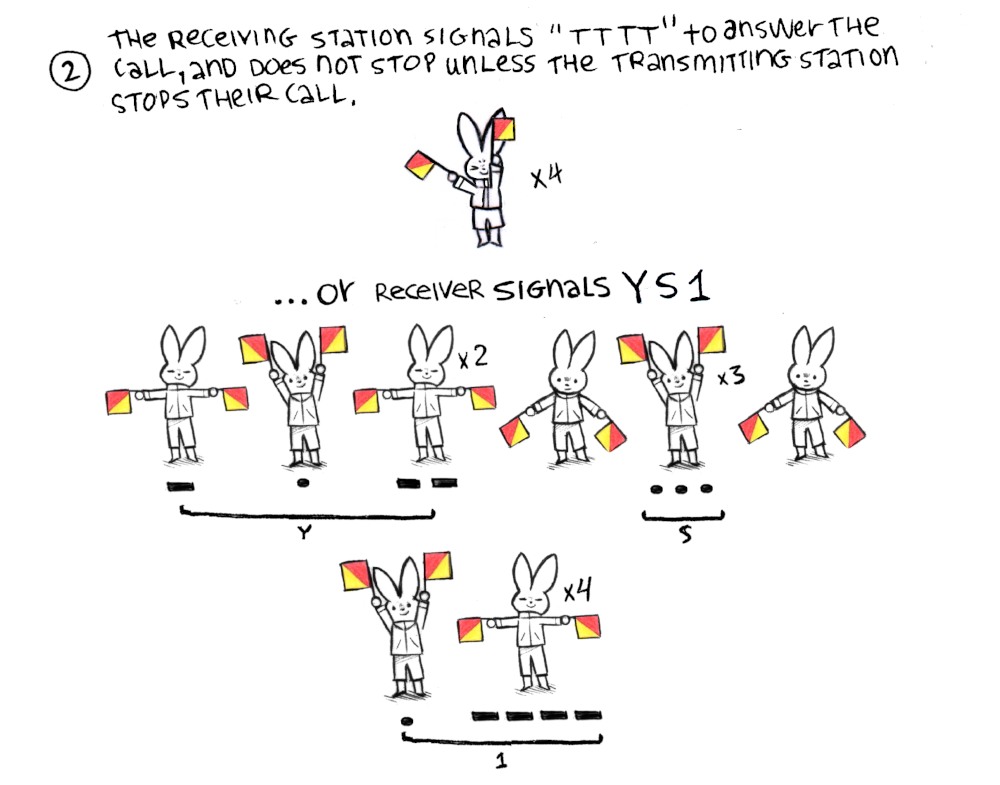 THE RECEIVING STATION SIGNALS "TTTT" to answer THE
② CALL, AND DOES NOT STOP UNLESS THE TRANSMITTING STATION
STOPS THEIR CALL.
x4
...or RECEIVER SIGNALS YS1
x2
x3
Y
S
x4
1